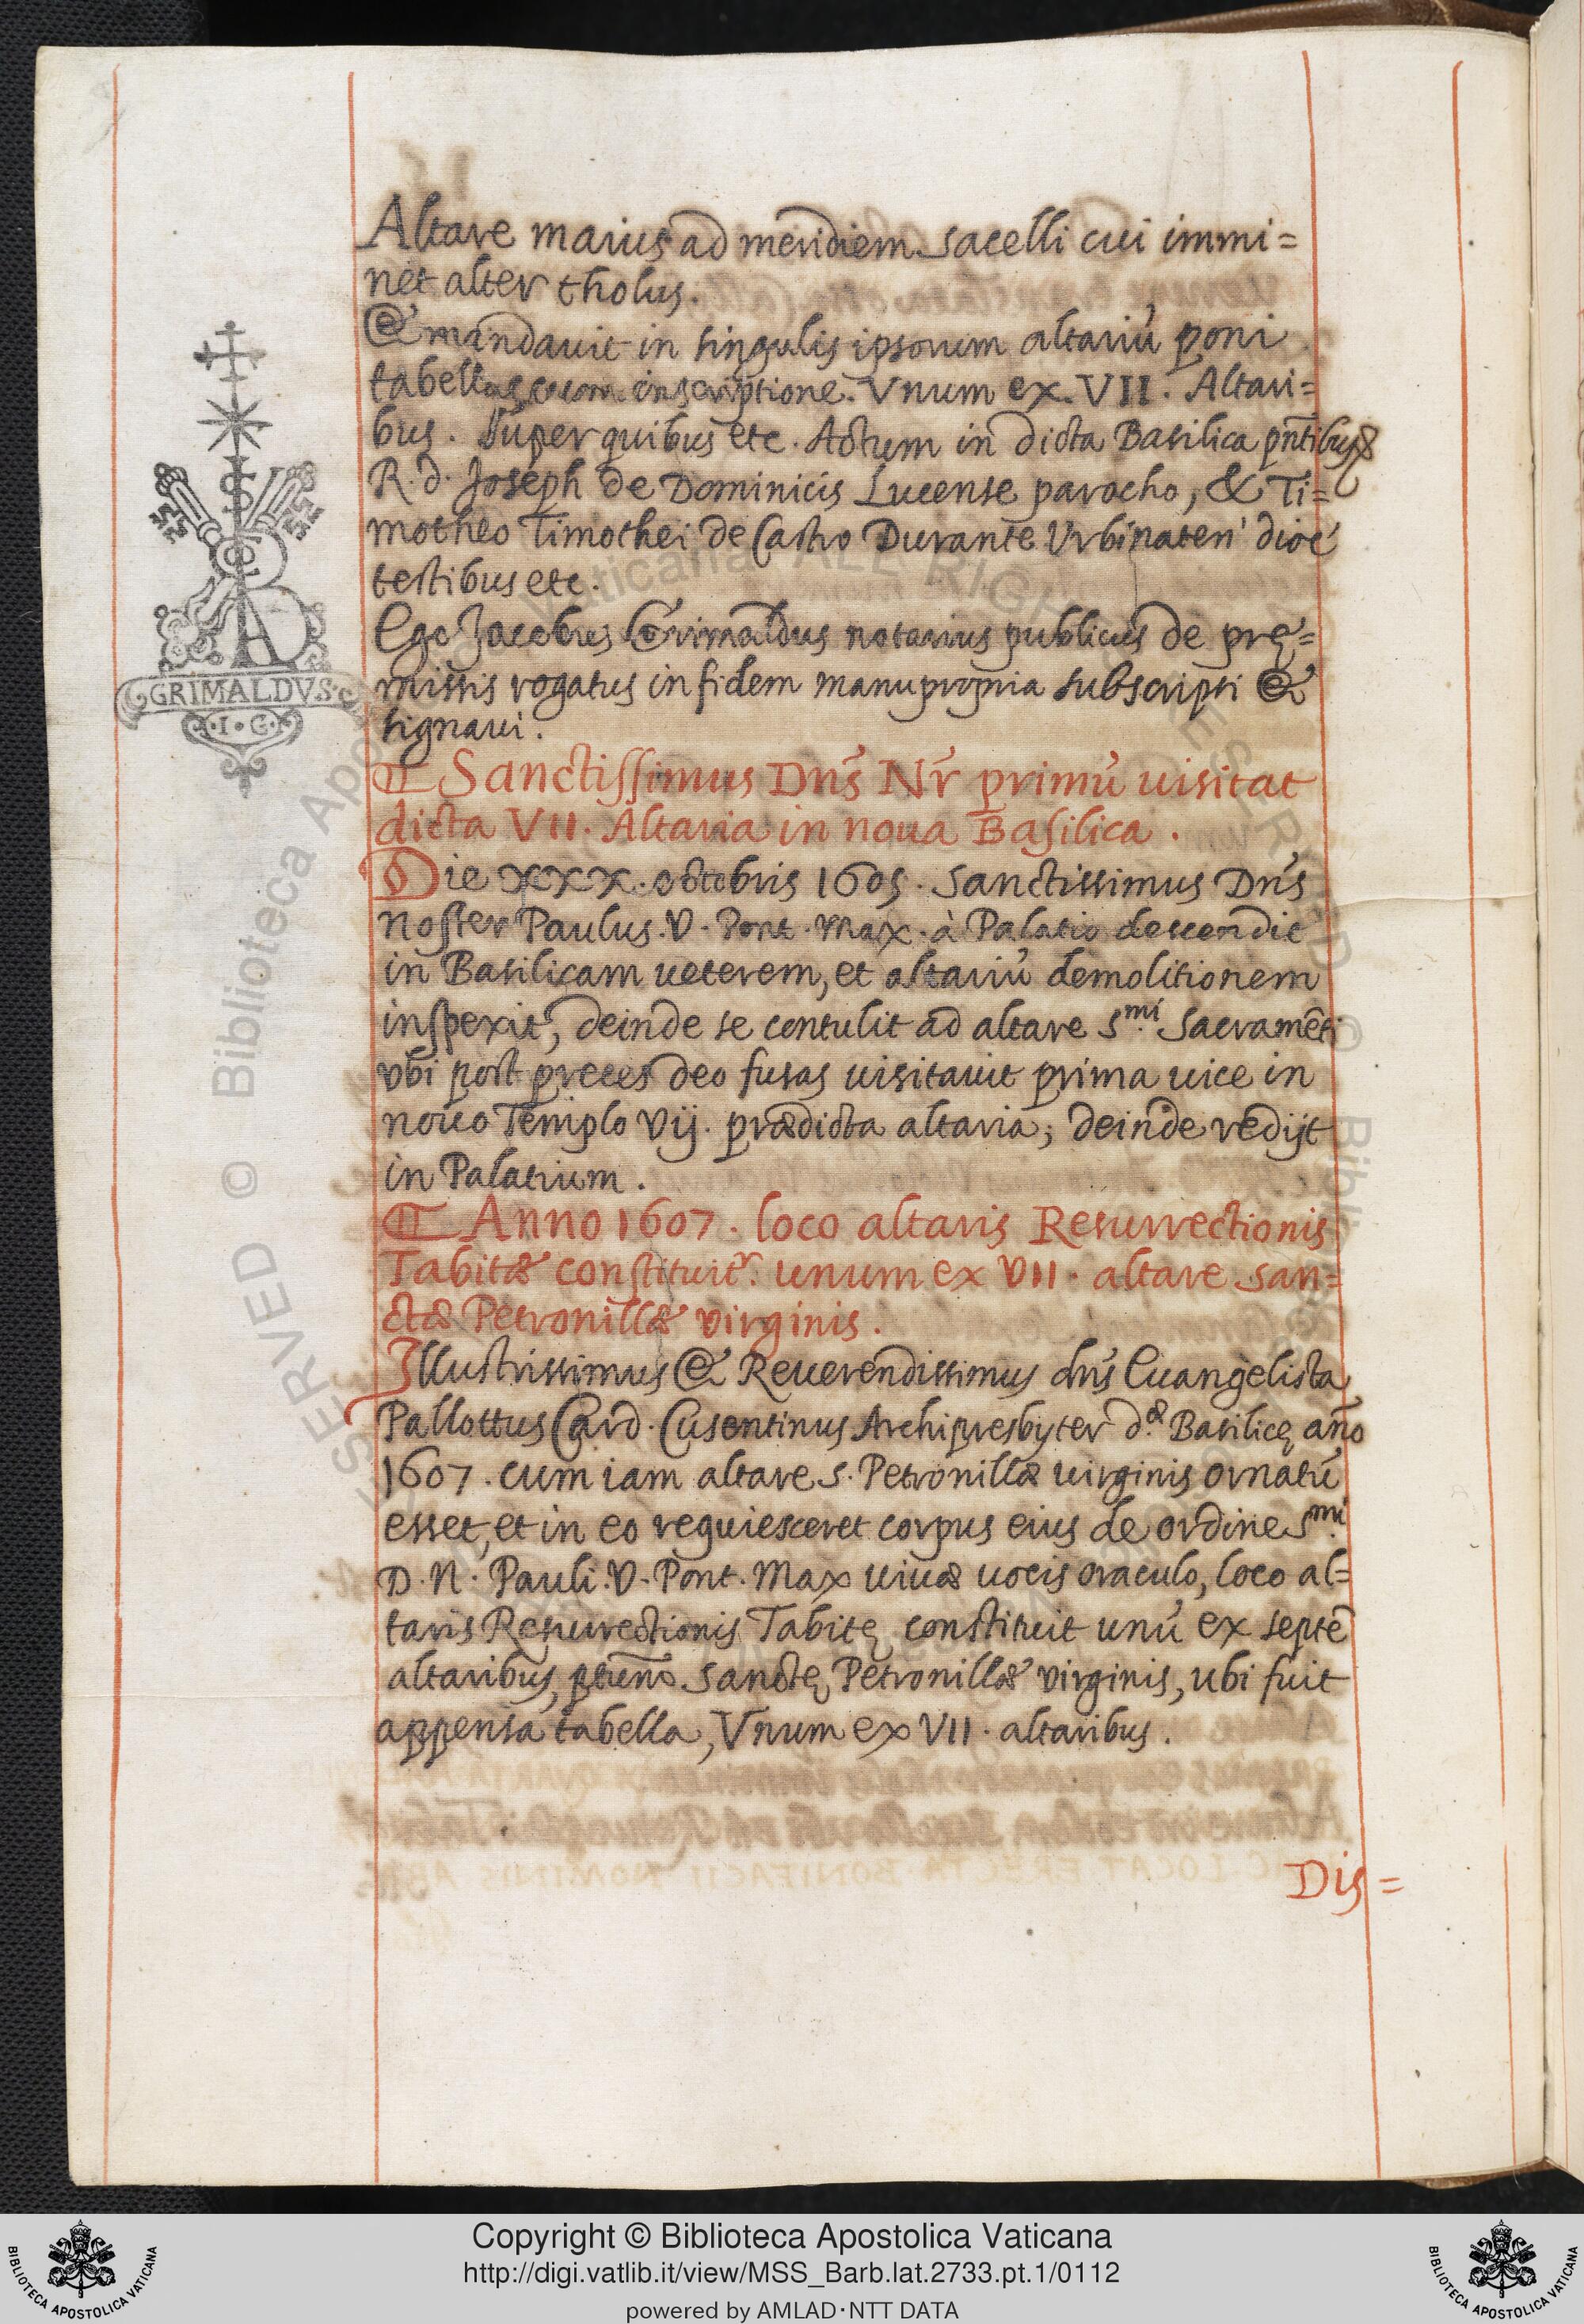 Altare maius ad meridiem sacelli cui immi=
net alter tholus.
& mandauit in singulis ipsorum altariū poni
tabellas cum inscriptione. Vnum ex. VII. Altari=
bus. Super quibus etc. Actum in dicta Basilica pn̄tibus
R. d. Joseph de Dominicis Lucense parocho, & Ti=
motheo Timothei de Castro Durante Vrbinaten' dioc'
testibus etc.
Ego Jacobus Grimaldus notarius publicus de prę=
missis rogatus in fidem manu propria subscripsi &
signaui.
GRIMALDVS
·I·G·
Sanctissimus Dn̄s Nr̄ primū uisitat
dicta VII. Altaria in noua Basilica.
Die XXX. octobris 1605. Sanctissimus Dn̄s
noster Paulus. V. Pont. Max. à Palatio descendit
in Basilicam ueterem, et altariū demolitionem
inspexit, deinde se contulit ad altare S.mi Sacramēti
vbi post preces deo fusas uisitauit prima uice in
nouo Templo Vij. prædicta altaria; deinde redijt
in Palatium.
Anno 1607. loco altaris Resurrectionis
Tabitæ constituit.r unum ex VII. altare san=
ctæ Petronillæ virginis.
Illustrissimus & Reuerendissimus dn̄s Euangelista
Pallottus Card. Cusentinus Archipresbyter d.æ Basilicę an̄o
1607. cum iam altare S. Petronillæ uirginis ornatū
esset, et in eo requiesceret corpus eius de ordine S.mi
D. N. Pauli. V. Pont. Max uiuæ uocis oraculo, loco al=
taris Resurrectionis Tabitę constituit unū ex septē
altaribus, Sanctę Petronillæ virginis, ubi fuit
appensa tabella, Vnum ex VII. altaribus.
Dis=
Copyright © Biblioteca Apostolica Vaticana
http://digi.vatlib.it/view/MSS_Barb.lat.2733.pt.1/0112
powered by AMLAD·NTT DATA
BIBLIOTECA APOSTOLICA VATICANA
BIBLIOTECA APOSTOLICA VATICANA